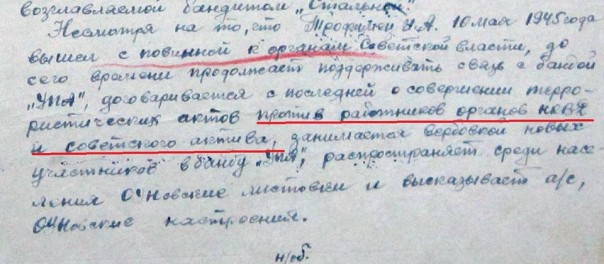 возглавляемой бандитом „Стальной".
Несмотря на то, что Трофимчук А. 10 мая 1945 года
вышел с повинной к органам Советской власти, до
сего времени продолжает поддерживать связь с бандой
„УПА", договаривается с последней о совершении терро-
ристических актов против работников органов НКВД
и советского актива, занимается вербовкой новых
участников в банду „УПА", распространяет среди насе-
ления ОУНовские листовки и высказывает а/с,
ОУНовские настроения.
н/об.